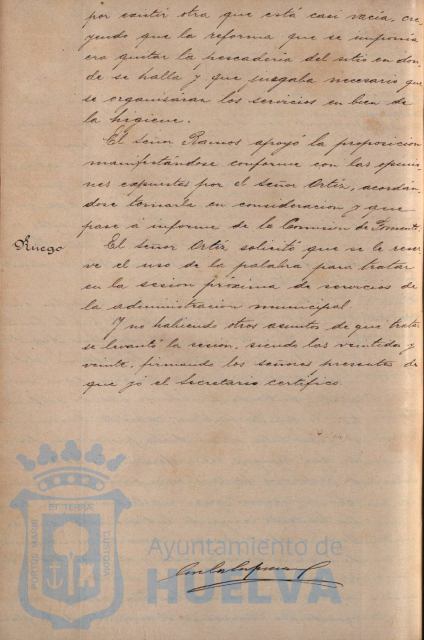 por existir otra que está casi vacía, cre-
yendo que la reforma que se imponía
era quitar la pescadería del sitio en don-
de se halla y que juzgaba necesario que
se organizaran los servicios en bien de
la higiene.
El señor Ramos apoyó la proposición
manifestándose conforme con las opinio-
nes expuestas por el señor Ortiz, acordán-
dose tomarla en consideración y que
pase á informe de la Comisión de Fomento.
Ruego
El Señor Ortiz solicitó que se le reser-
ve el uso de la palabra para tratar
en la sesion próxima de servicios de
la administración municipal
Y no habiendo otros asuntos de que tratar
se levantó la sesion, siendo las veintidos y
veinte, firmando los señores presentes de
que yó el Secretario certifico.
PORTUS MARIS ET TERRAE CUSTODIA
Ayuntamiento de
HUELVA